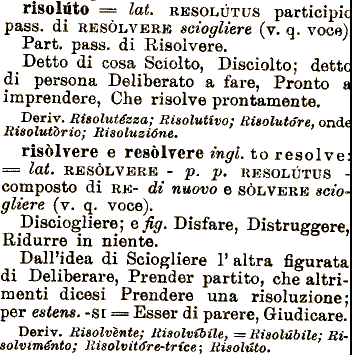 risolúto = lat. RESOLÚTUS participio
pass. di RESÒLVERE sciogliere (v. q. voce)
Part. pass. di Risolvere.
Detto di cosa Sciolto, Disciolto; detto
di persona Deliberato a fare, Pronto a
imprendere, Che risolve prontamente.
Deriv. Risolutézza; Risolutívo; Risolutóre, onde
Risolutòrio; Risoluzióne.
risòlvere e resòlvere ingl. to resolve:
= lat. RESÒLVERE - p. p. RESOLÚTUS -
composto di RE- di nuovo e SÒLVERE scio-
gliere (v. q. voce).
Disciogliere; e fig. Disfare, Distruggere,
Ridurre in niente.
Dall'idea di Sciogliere l'altra figurata
di Deliberare, Prender partito, che altri-
menti dicesi Prendere una risoluzione;
per estens. -SI = Esser di parere, Giudicare.
Deriv. Risolvènte; Risolvíbile, = Risolúbile; Ri-
solviménto; Risolvitóre-tríce; Risolúto.